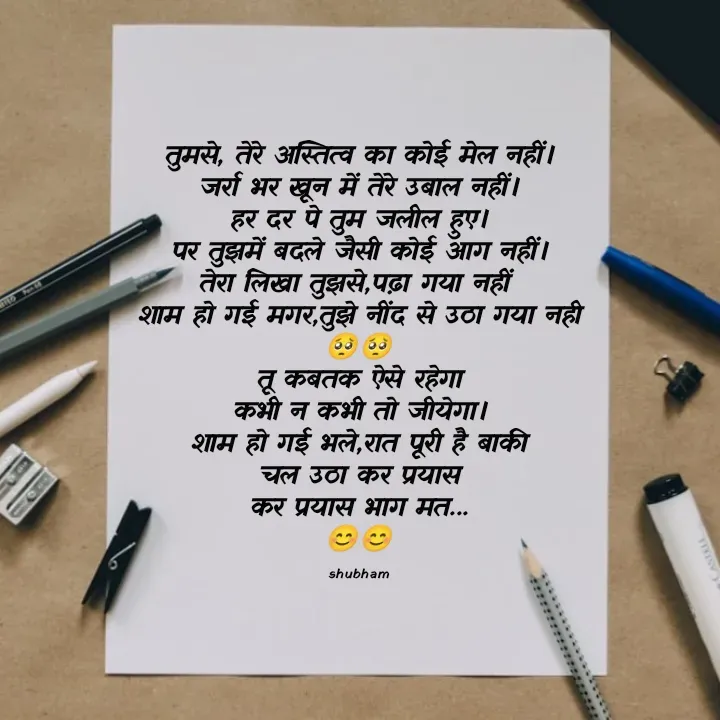 तुमसे, तेरे अस्तित्व का कोई मेल नहीं।
जर्रा भर खून में तेरे उबाल नहीं।
हर दर पे तुम जलील हुए।
पर तुझमें बदले जैसी कोई आग नहीं।
तेरा लिखा तुझसे,पढ़ा गया नहीं
शाम हो गई मगर,तुझे नींद से उठा गया नही
🥺🥺
तू कबतक ऐसे रहेगा
कभी न कभी तो जीयेगा।
शाम हो गई भले,रात पूरी है बाकी
चल उठा कर प्रयास
कर प्रयास भाग मत...
😊😊
shubham